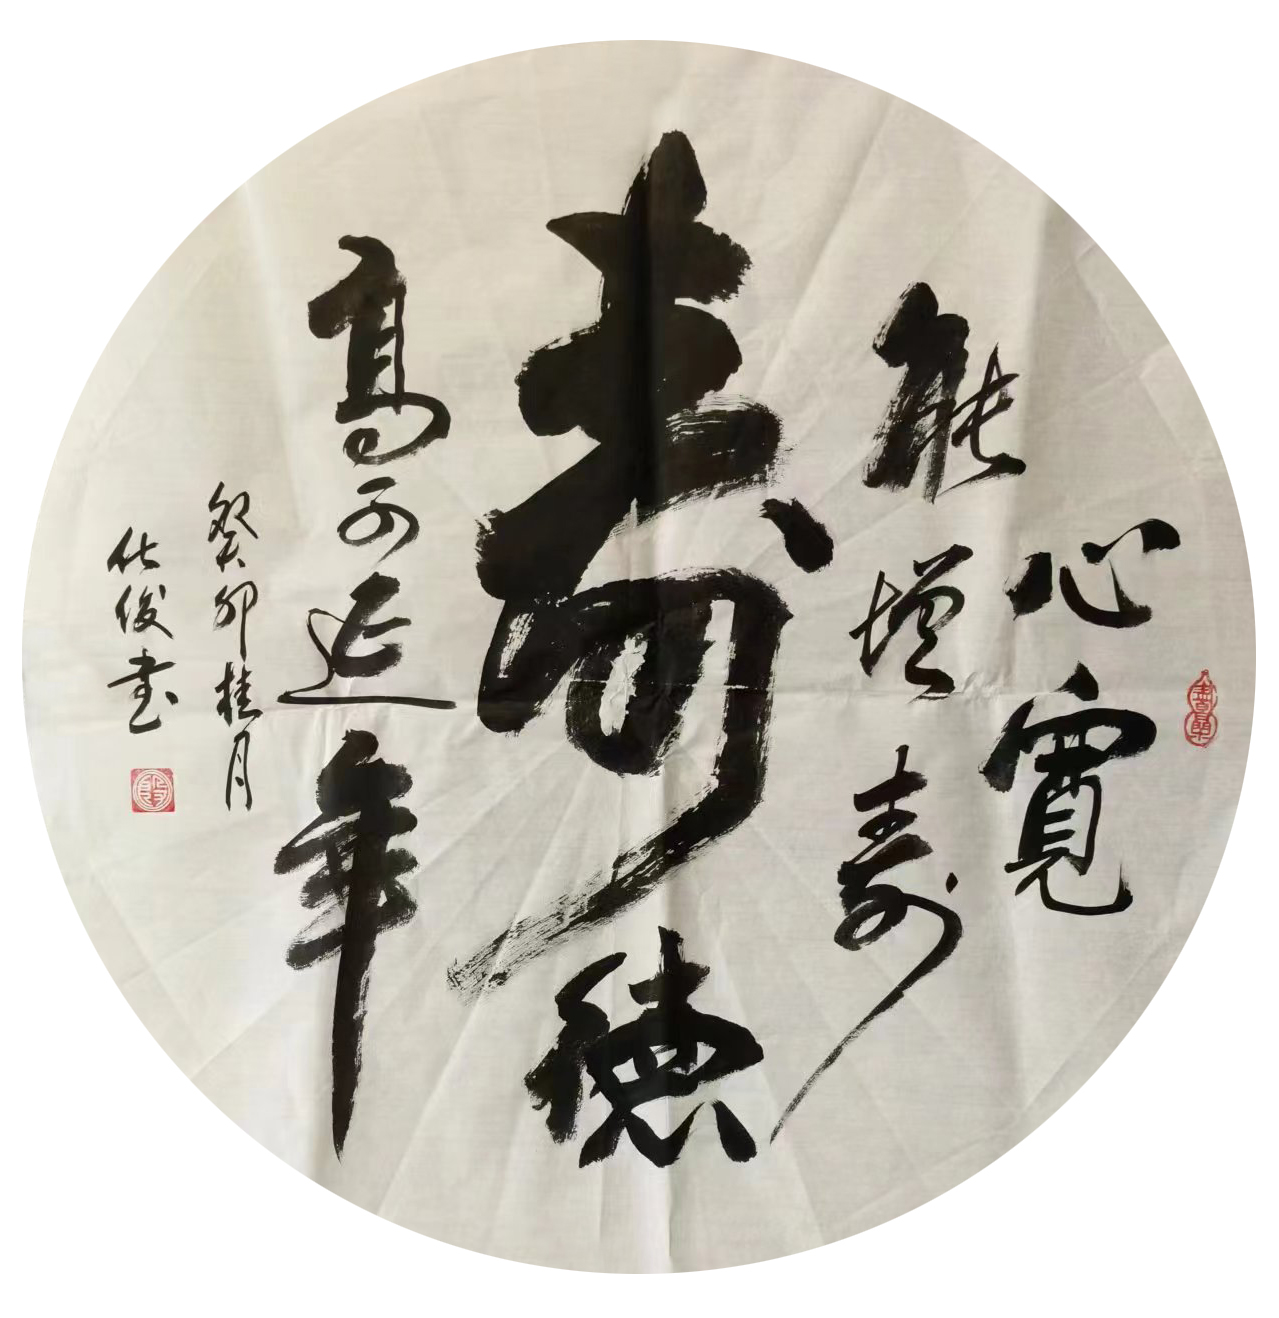 心寬
能增壽
壽德
高可延年
癸卯桂月
化俊書